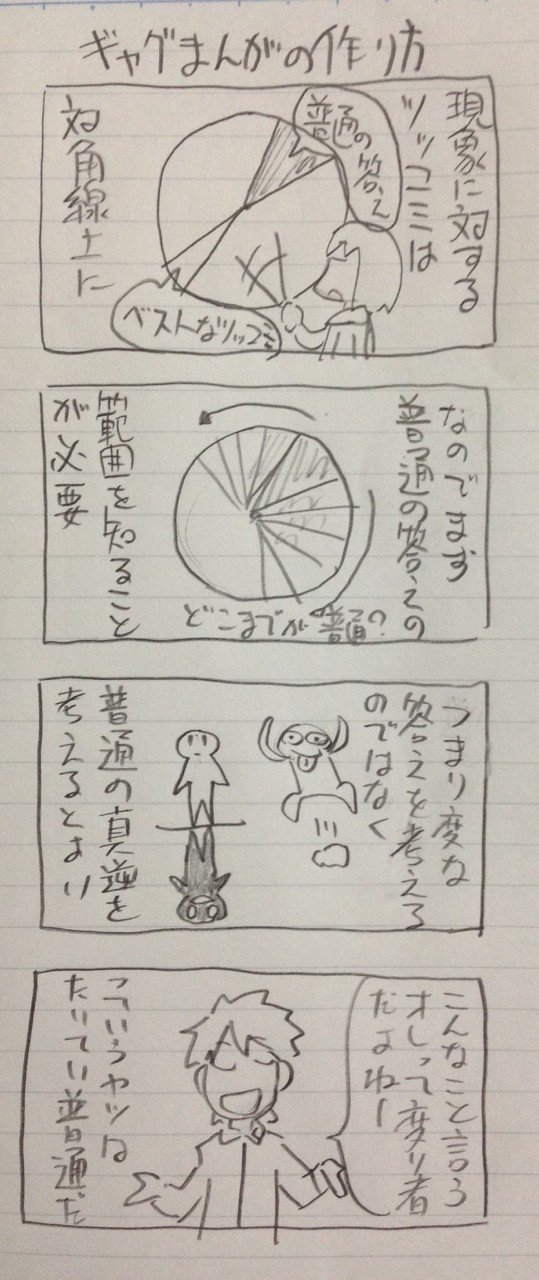 ギャグまんがの作り方
現象に対する
ツッコミは
普通の答え
対角線上に
ベストなツッコミ
なのでまず
普通の答えの
どこまでが普通の?
範囲を知ること
が必要
つまり変な
答えを考える
のではなく
普通の真逆を
考えるとよい
こんなこと言う
オレって変り者
だよねー
こういうヤツは
たいてい普通だ